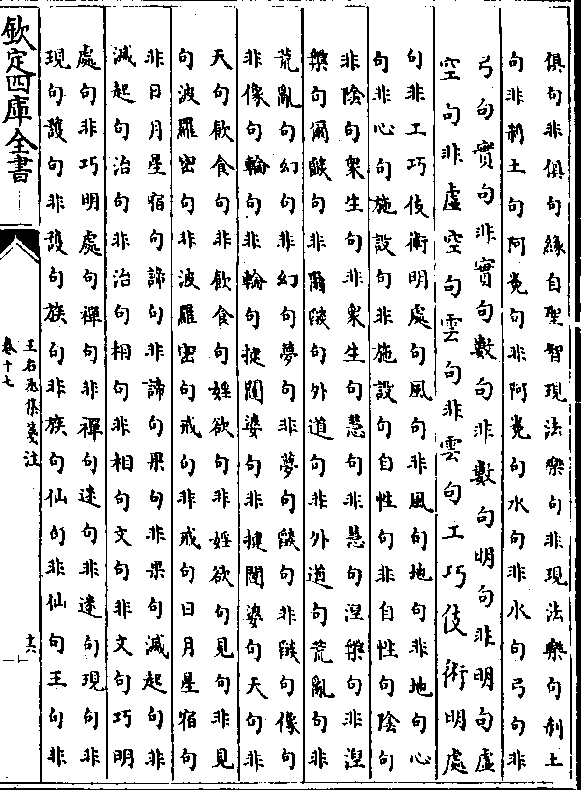 俱句非俱句緣自聖智現法樂句非現法樂句刹土
句非刹土句阿㝹句非阿㝹句水句非水句弓句非
弓句實句非實句數句非數句明句非明句虛
空句非虛空句雲句非雲句工巧伎術明處
句非工巧伎術明處句風句非風句地句非地句心
句非心句施設句非施設句自性句非自性句陰句
非陰句衆生句非衆生句慧句非慧句涅槃句非涅
槃句爾燄句非爾燄句外道句非外道句荒亂句非
荒亂句幻句非幻句夢句非夢句燄句非燄句像句
非像句輪句非輪句揵闥婆句非揵闥婆句天句非
天句飲食句非飲食句婬欲句非婬欲句見句非見
句波羅密句非波羅密句戒句非戒句日月星宿句
非日月星宿句諦句非諦句果句非果句滅起句非
滅起句治句非治句相句非相句文句非文句巧明
處句非巧明處句禪句非禪句迷句非迷句現句非
現句護句非護句族句非族句仙句非仙句王句非
欽定四庫全書
王右丞集箋注
卷十七
十六